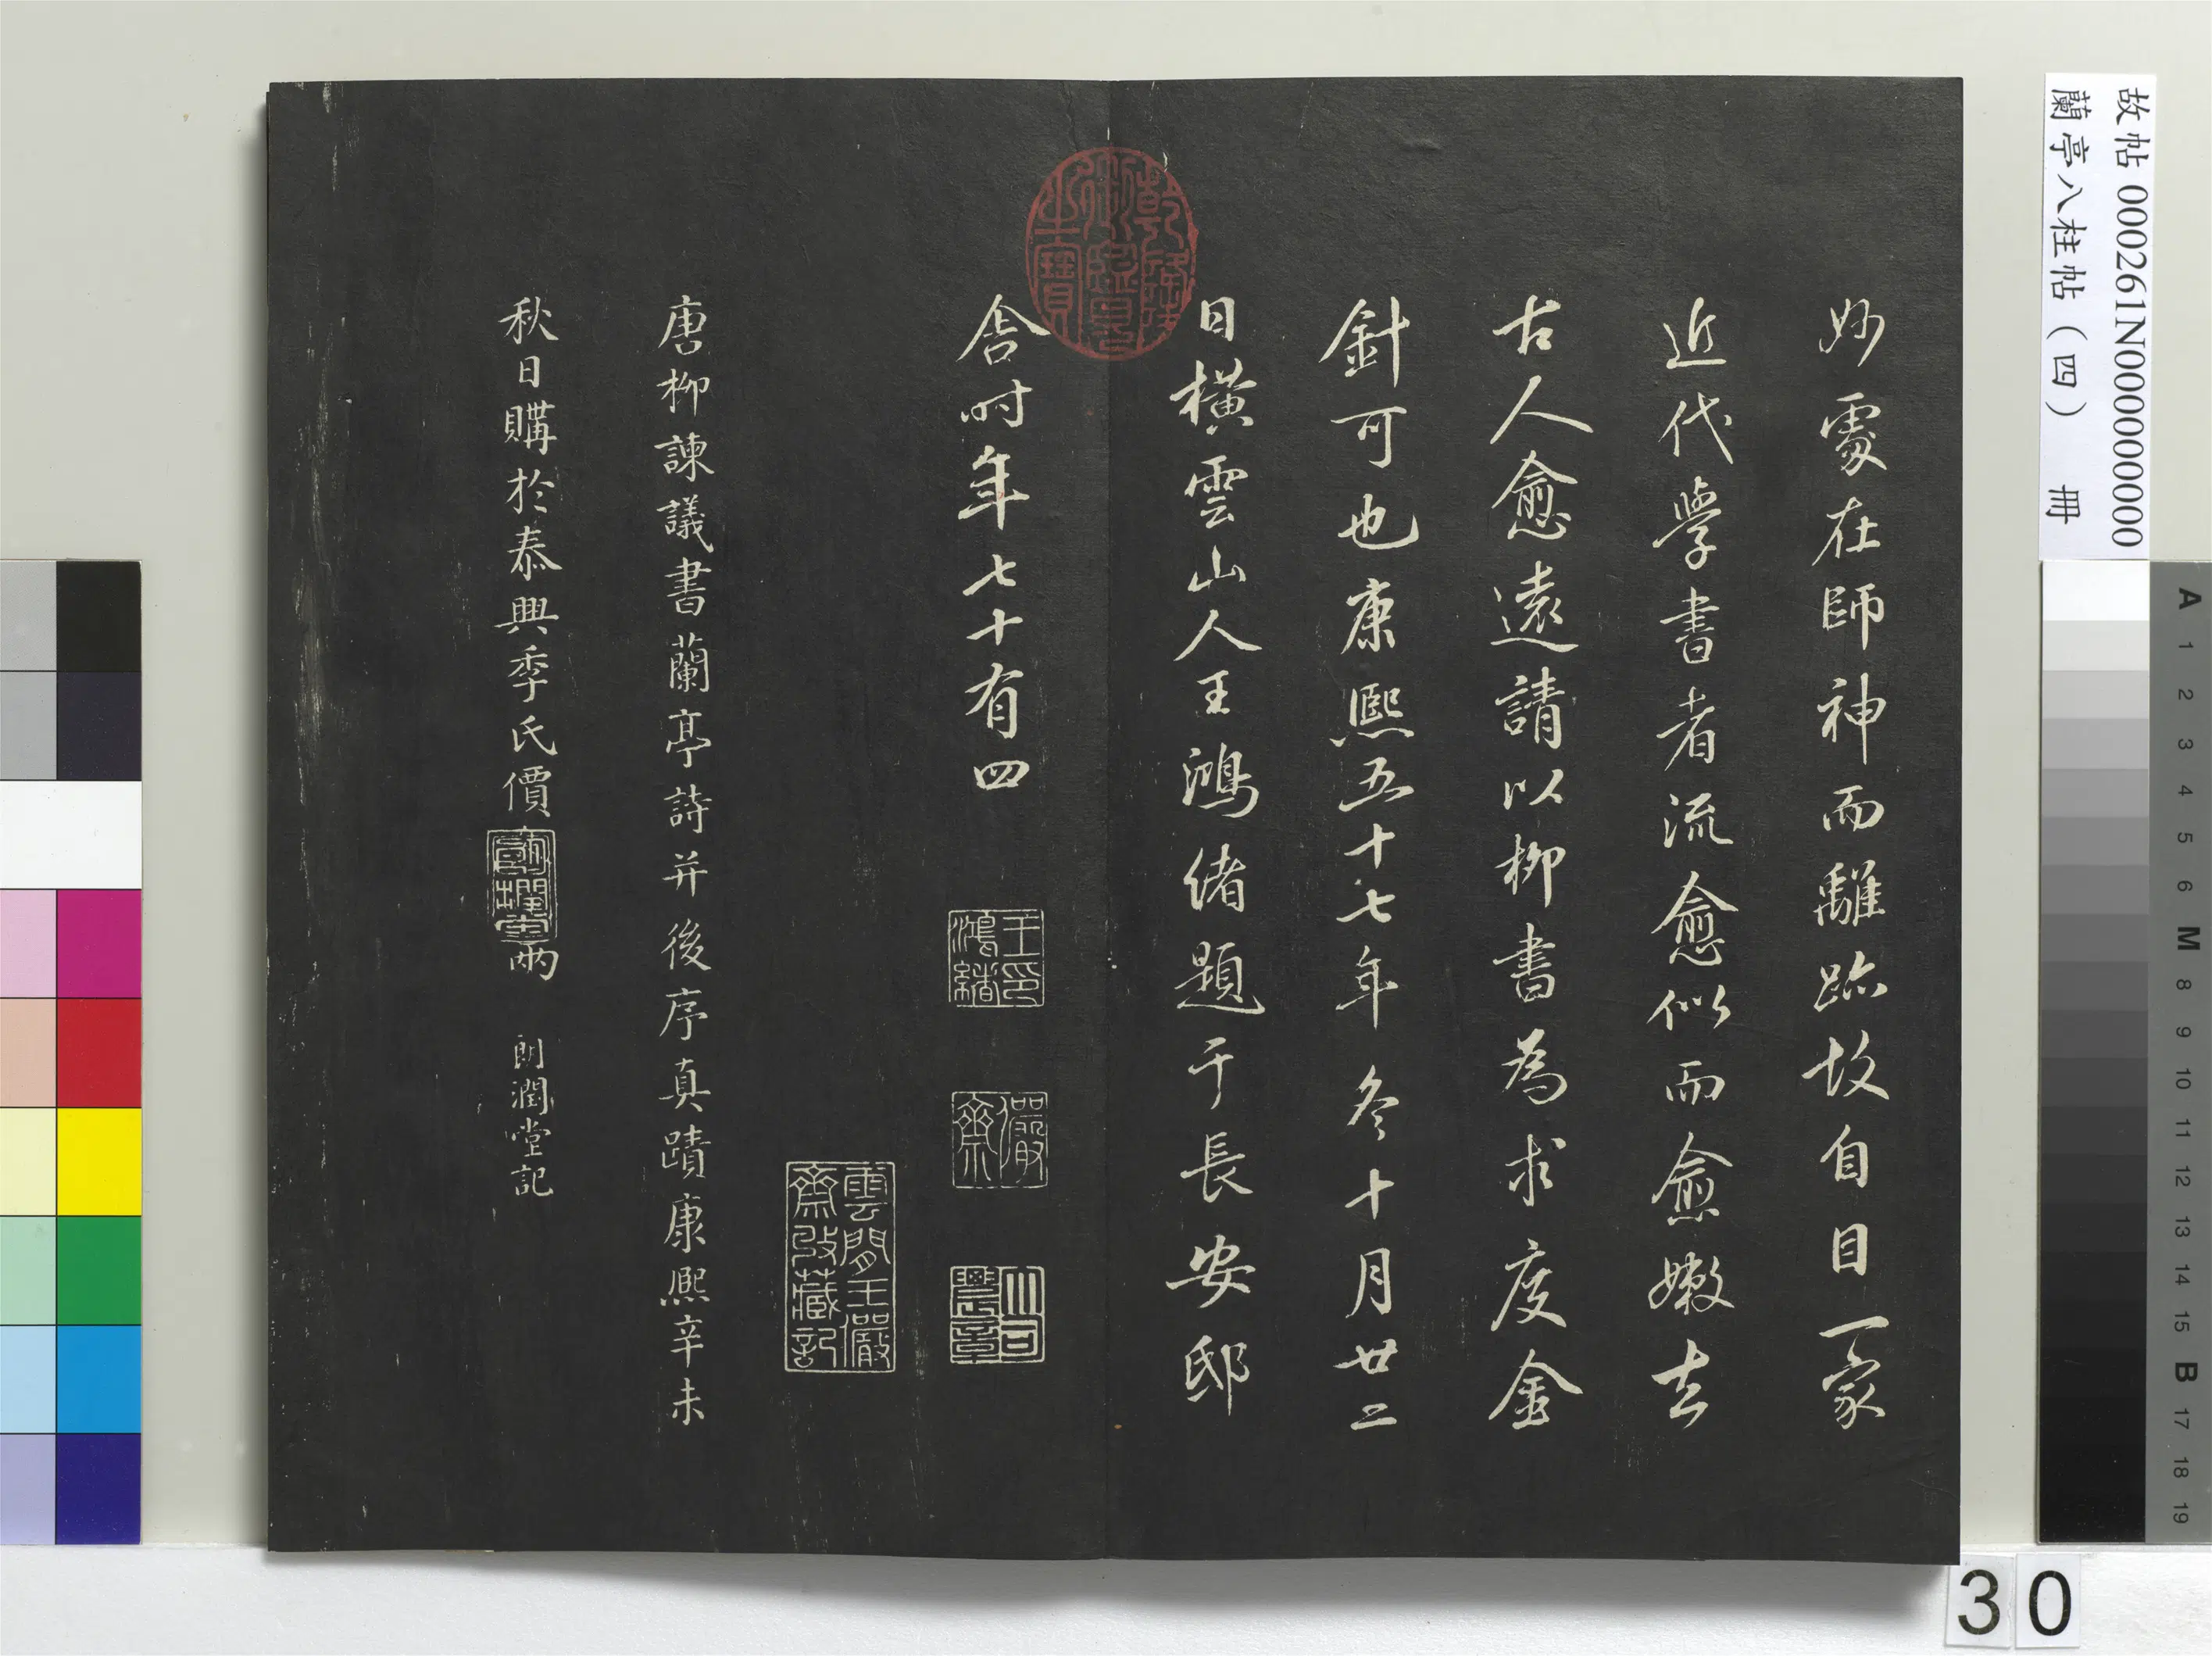 妙處在師神而離跡故自目一家
近代學書者流愈似而愈嫩去
古人愈遠請以柳書為求度金
針可也康熙五十七年冬十月廿二
日橫雲山人王鴻緒題于長安邸
舍时年七十有四
王印鴻緒
儼齋
大司農章
雲間王儼齋收藏記
唐柳諫議書蘭亭詩并後序真蹟康熙辛未
秋日購於泰興季氏價
兩
朗潤堂
朗潤堂記
乾隆御覽之寶
故帖 000261N000000000
蘭亭八柱帖（四） 冊
A 1 2 3 4 5 6 M 8 9 10 11 12 13 14 15 B 17 18 19
30